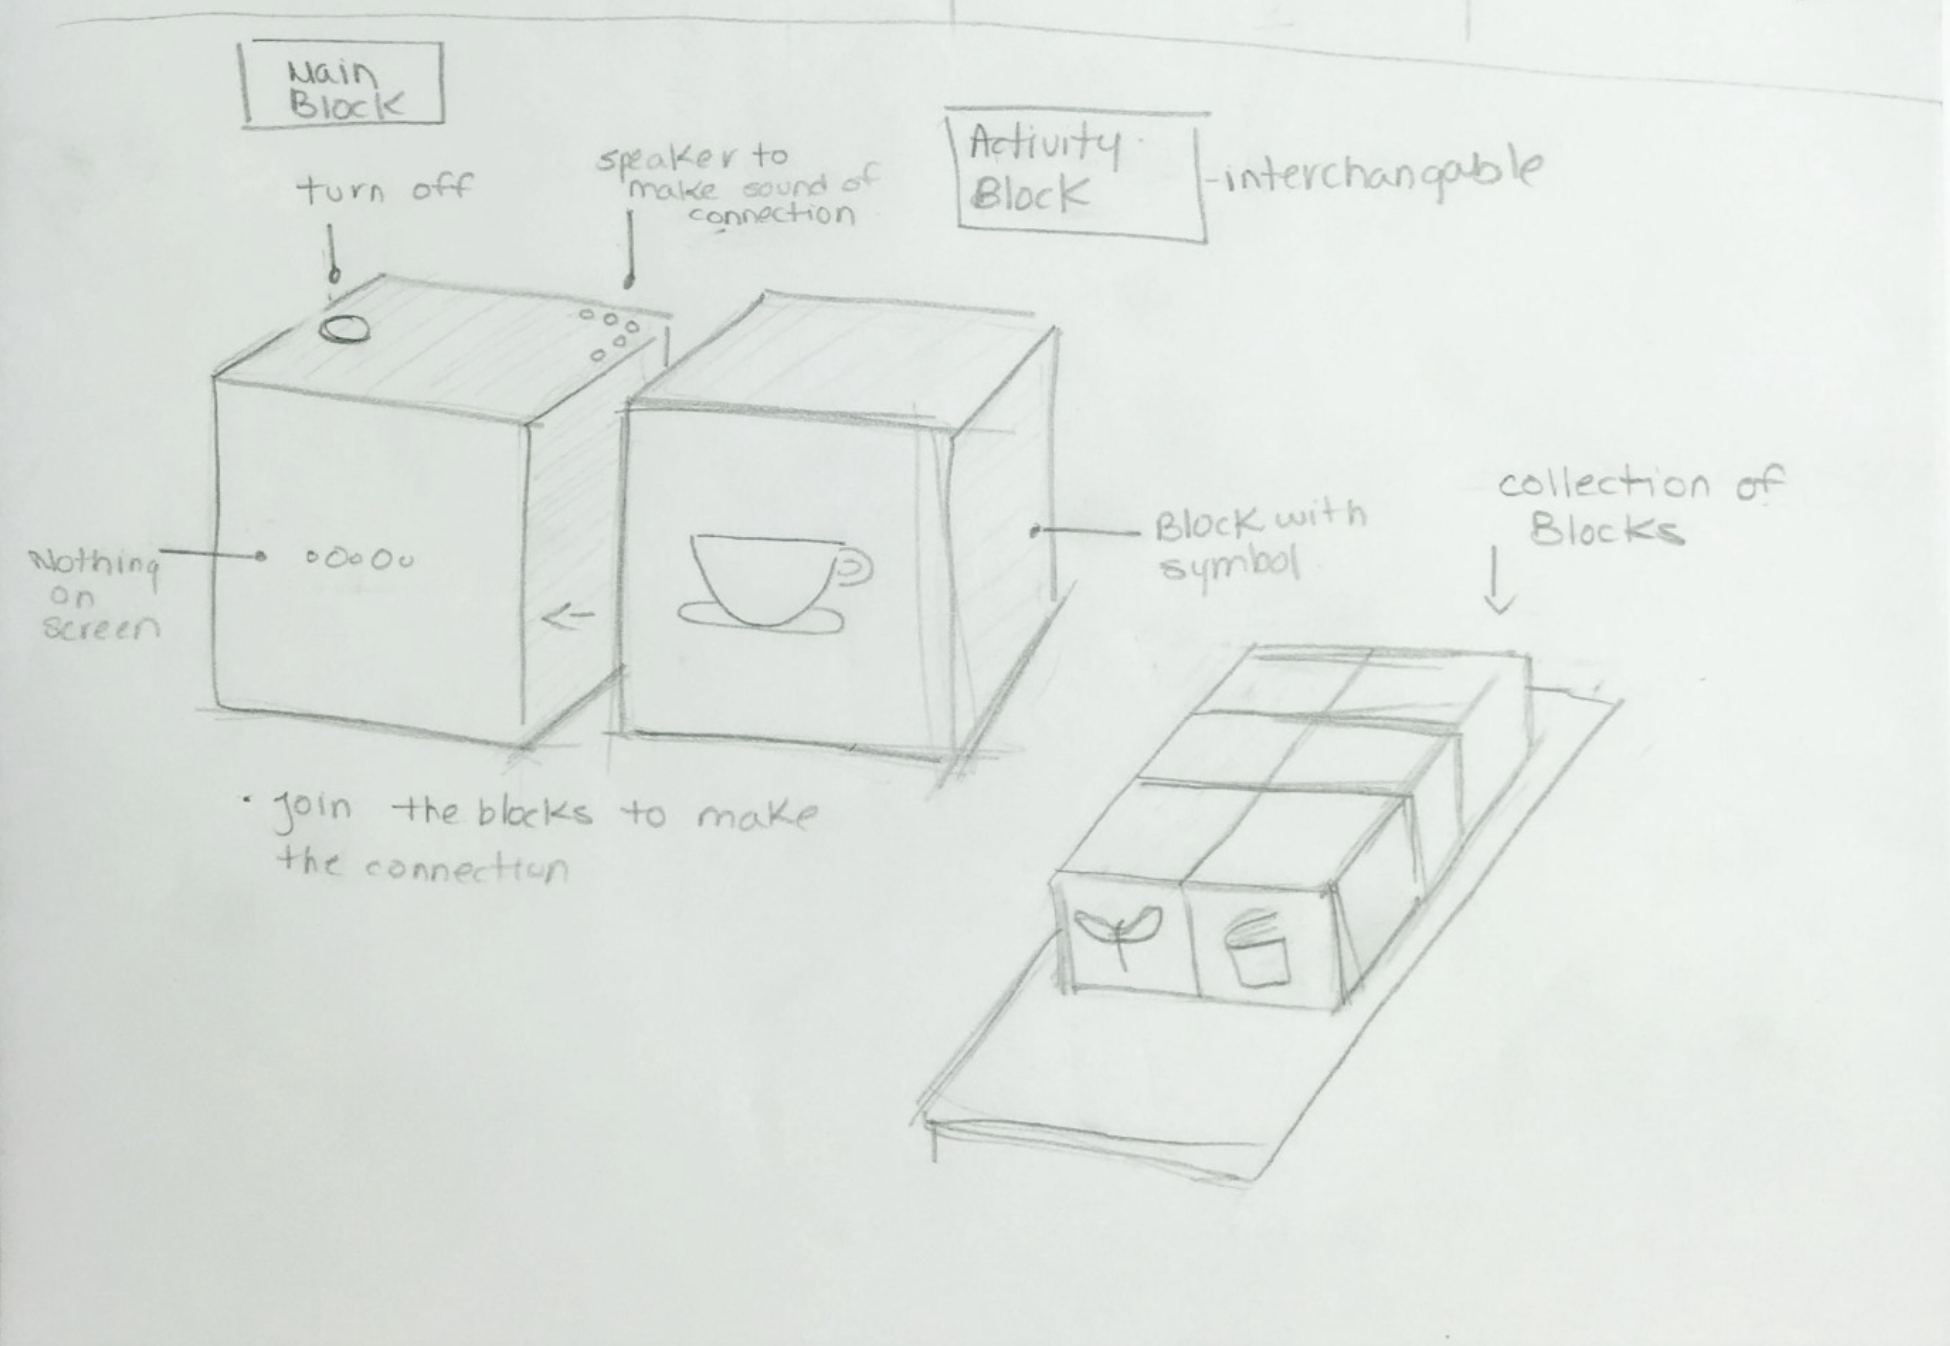 Main
Block
turn off
speaker to
make sound of
connection
Activity
Block
-interchangable
Nothing
on
screen
Block with
symbol
collection of
Blocks
• Join the blocks to make
the connection